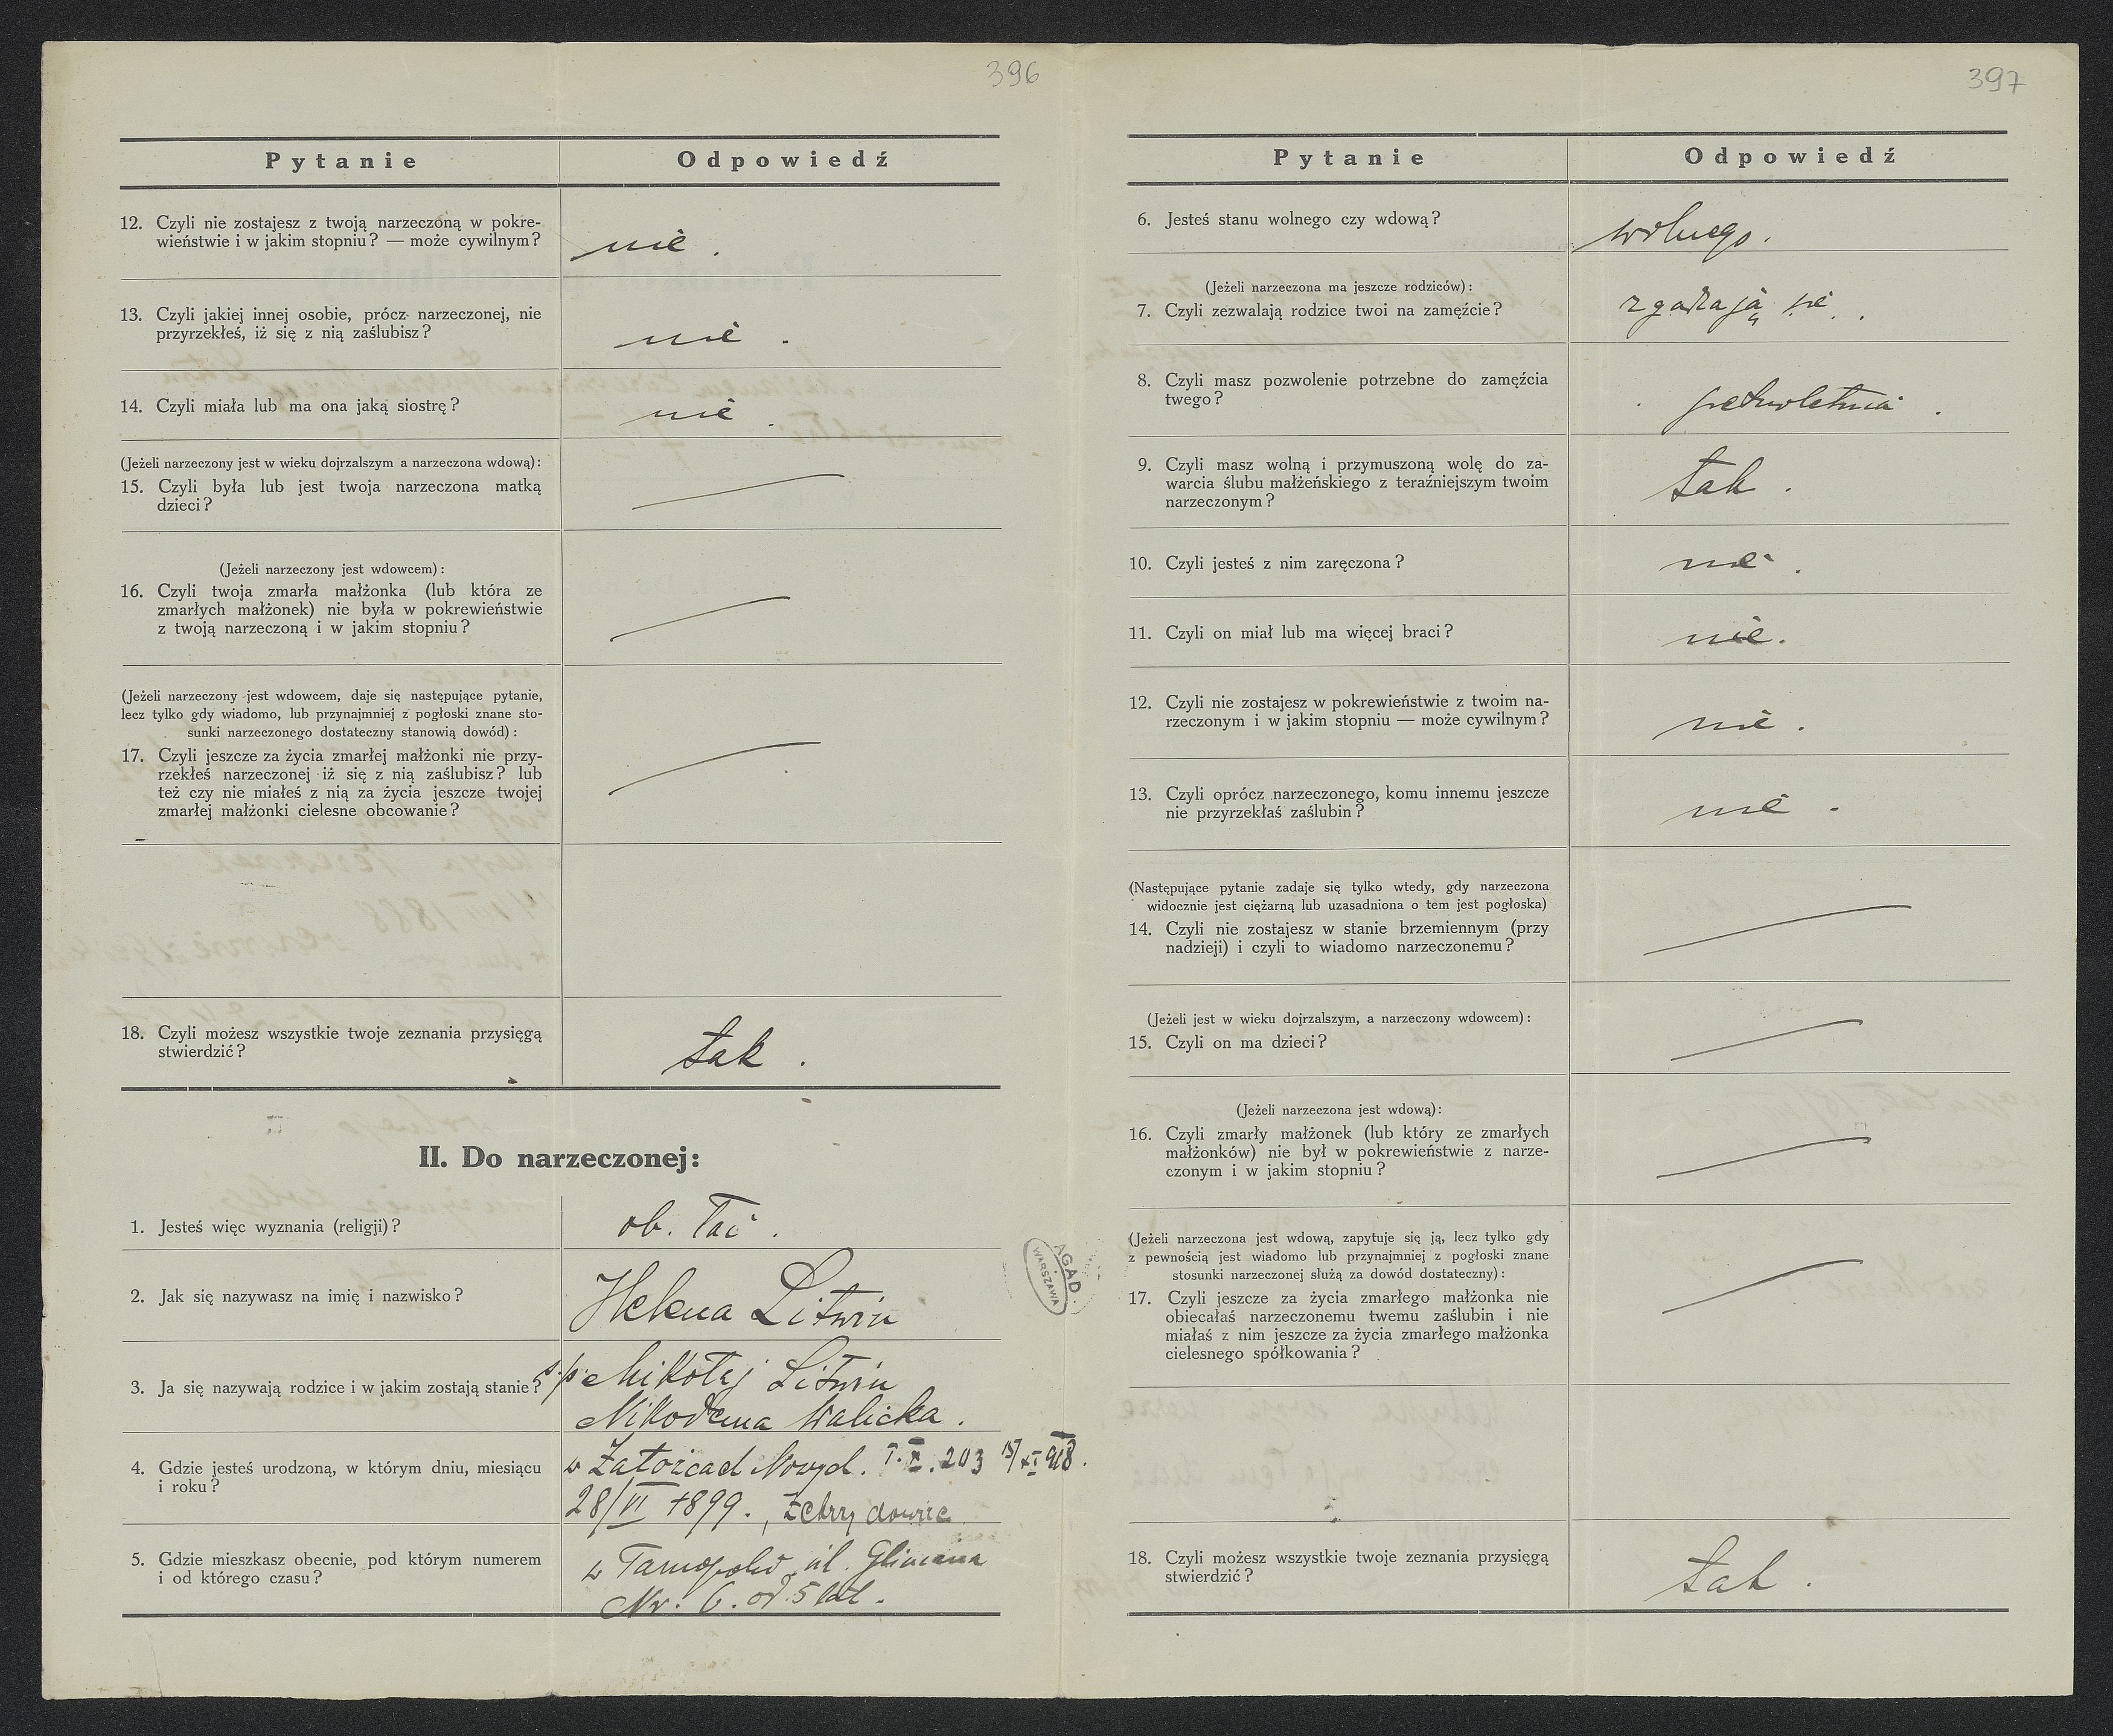 396
Pytanie Odpowiedź
12. Czyli nie zostajesz z twoją narzeczoną w pokre-
wieństwie i w jakim stopniu? — może cywilnym? nie.
13. Czyli jakiej innej osobie, prócz narzeczonej, nie
przyrzekłeś, iż się z nią zaślubisz? nie.
14. Czyli miała lub ma ona jaką siostrę? nie.
(Jeżeli narzeczony jest w wieku dojrzalszym a narzeczona wdową):
15. Czyli była lub jest twoja narzeczona matką
dzieci?
(Jeżeli narzeczony jest wdowcem):
16. Czyli twoja zmarła małżonka (lub która ze
zmarłych małżonek) nie była w pokrewieństwie
z twoją narzeczoną i w jakim stopniu?
(Jeżeli narzeczony jest wdowcem, daje się następujące pytanie,
lecz tylko gdy wiadomo, lub przynajmniej z pogłoski znane sto-
sunki narzeczonego dostateczny stanowią dowód):
17. Czyli jeszcze za życia zmarłej małżonki nie przy-
rzekłeś narzeczonej iż się z nią zaślubisz? lub
też czy nie miałeś z nią za życia jeszcze twojej
zmarłej małżonki cielesne obcowanie?
18. Czyli możesz wszystkie twoje zeznania przysięgą
stwierdzić? tak.
II. Do narzeczonej:
1. Jesteś więc wyznania (religji)? ob. łać.
2. Jak się nazywasz na imię i nazwisko? Helena Litwin
3. Ja się nazywają rodzice i w jakim zostają stanie? ś.p. Mikołaj Litwin
Nikodema Walicka.
4. Gdzie jesteś urodzoną, w którym dniu, miesiącu
i roku? 28/VI 1899.
5. Gdzie mieszkasz obecnie, pod którym numerem
i od którego czasu? w Tarnopolu ul. Gliniana
Nr. 6. od 5 lat.
AGAD
WARSZAWA
397
Pytanie Odpowiedź
6. Jesteś stanu wolnego czy wdową? wolnego.
(Jeżeli narzeczona ma jeszcze rodziców):
7. Czyli zezwalają rodzice twoi na zamęźcie? zgadzają się.
8. Czyli masz pozwolenie potrzebne do zamęźcia
twego? pełnoletnia.
9. Czyli masz wolną i przymuszoną wolę do za-
warcia ślubu małżeńskiego z teraźniejszym twoim
narzeczonym? tak.
10. Czyli jesteś z nim zaręczona? nie.
11. Czyli on miał lub ma więcej braci? nie.
12. Czyli nie zostajesz w pokrewieństwie z twoim na-
rzeczonym i w jakim stopniu — może cywilnym? nie.
13. Czyli oprócz narzeczonego, komu innemu jeszcze
nie przyrzekłaś zaślubin? nie.
(Następujące pytanie zadaje się tylko wtedy, gdy narzeczona
widocznie jest ciężarną lub uzasadniona o tem jest pogłoska)
14. Czyli nie zostajesz w stanie brzemiennym (przy
nadzieji) i czyli to wiadomo narzeczonemu?
(Jeżeli jest w wieku dojrzalszym, a narzeczony wdowcem):
15. Czyli on ma dzieci?
(Jeżeli narzeczona jest wdową):
16. Czyli zmarły małżonek (lub który ze zmarłych
małżonków) nie był w pokrewieństwie z narze-
czonym i w jakim stopniu?
(Jeżeli narzeczona jest wdową, zapytuje się ją, lecz tylko gdy
z pewnością jest wiadomo lub przynajmniej z pogłoski znane
stosunki narzeczonej służą za dowód dostateczny):
17. Czyli jeszcze za życia zmarłego małżonka nie
obiecałaś narzeczonemu twemu zaślubin i nie
miałaś z nim jeszcze za życia zmarłego małżonka
cielesnego spółkowania?
18. Czyli możesz wszystkie twoje zeznania przysięgą
stwierdzić? tak.